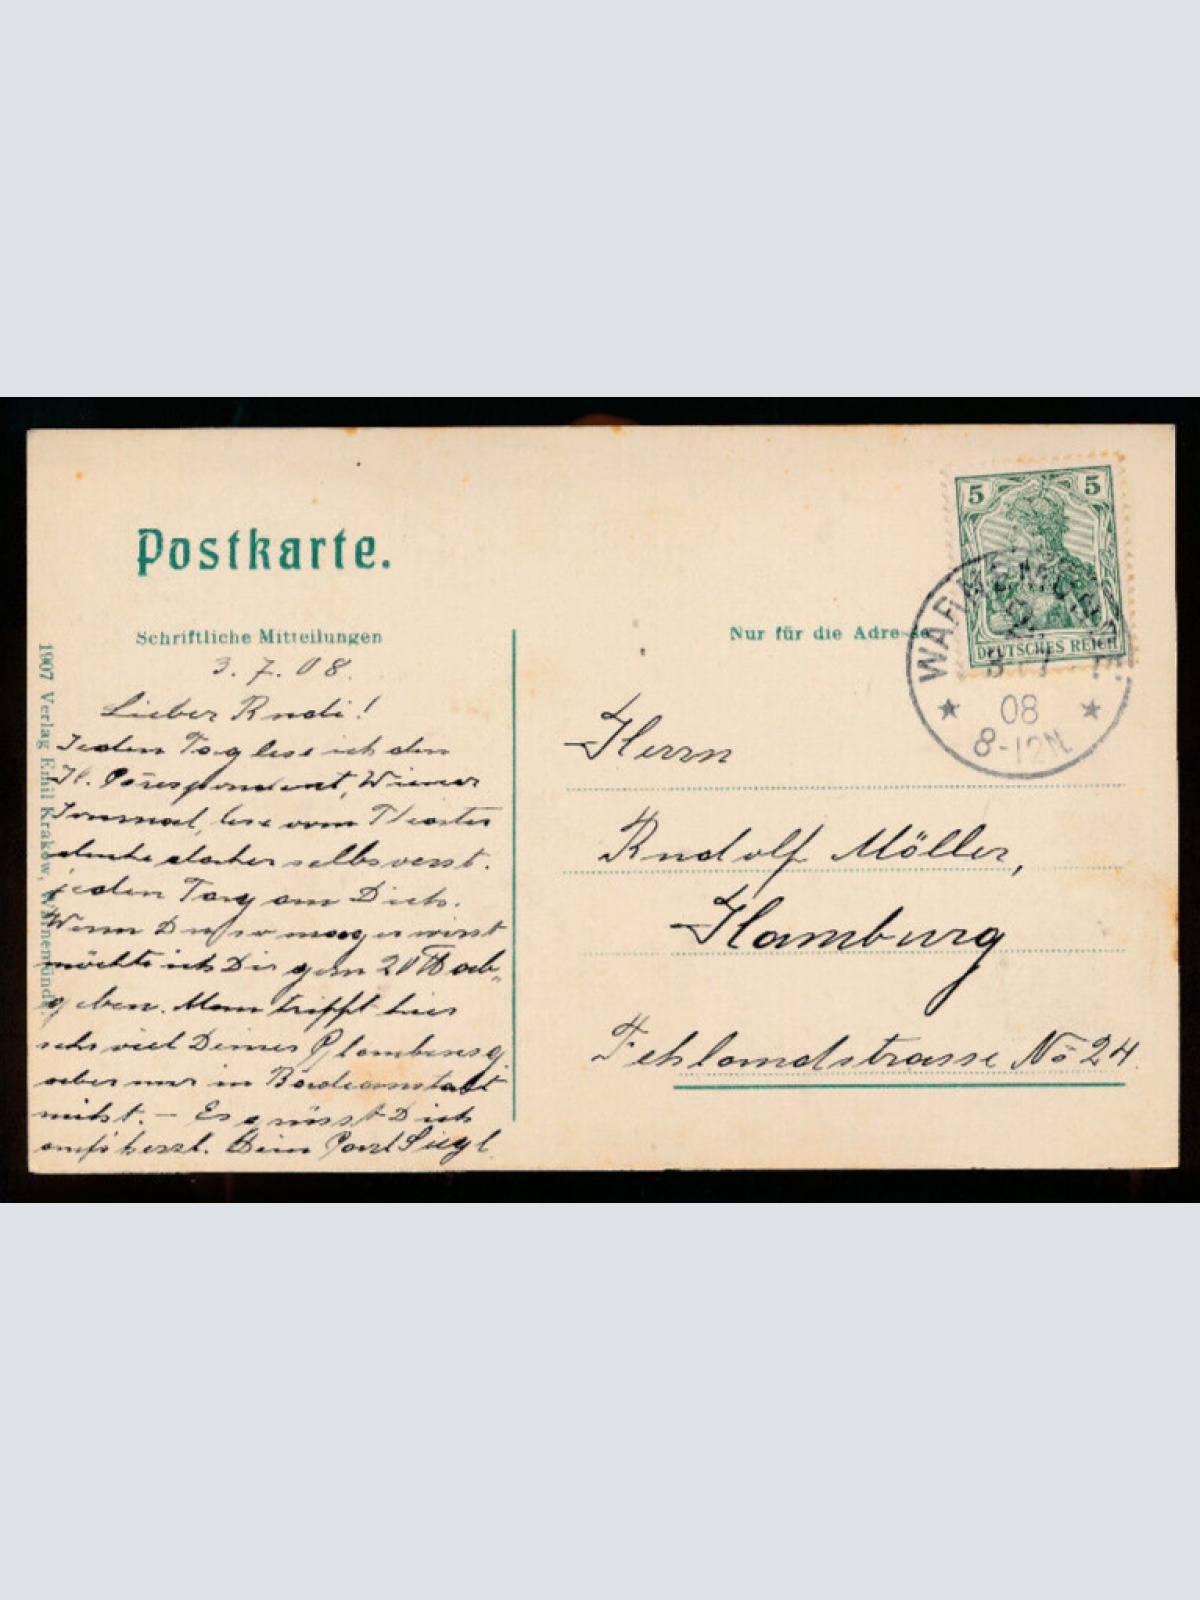 Postkarte.
Schriftliche Mitteilungen
3.7.08.
Lieber Rudi!
Jeden Tag lese ich den
H. Correspondent, Wiener
Journal, lese vom Theater
denke daher selbsverst.
jeden Tag an Dich.
Wenn Du so mager wirst
möchte ich Dir gern 20 ab-
geben. Man trifft hier
sehr viel Deiner
aber nur in Badeanstalt
nicht. — Es grüsst Dich
aufs herzl. Dein Paul Siegl
1907 Verlag Emil Krakow, Warnemünde.
5 5
DEUTSCHES REICH
WARNEMÜNDE
3 7
08
8-12N
Nur für die Adresse
Herrn
Rudolf Möller,
Hamburg
Fehlandstrasse No 24.